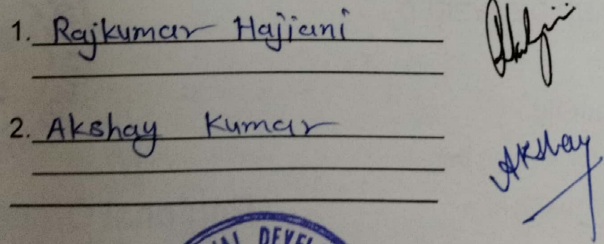 1. Rajkumar Hajiani
2. Akshay Kumar
Akshay